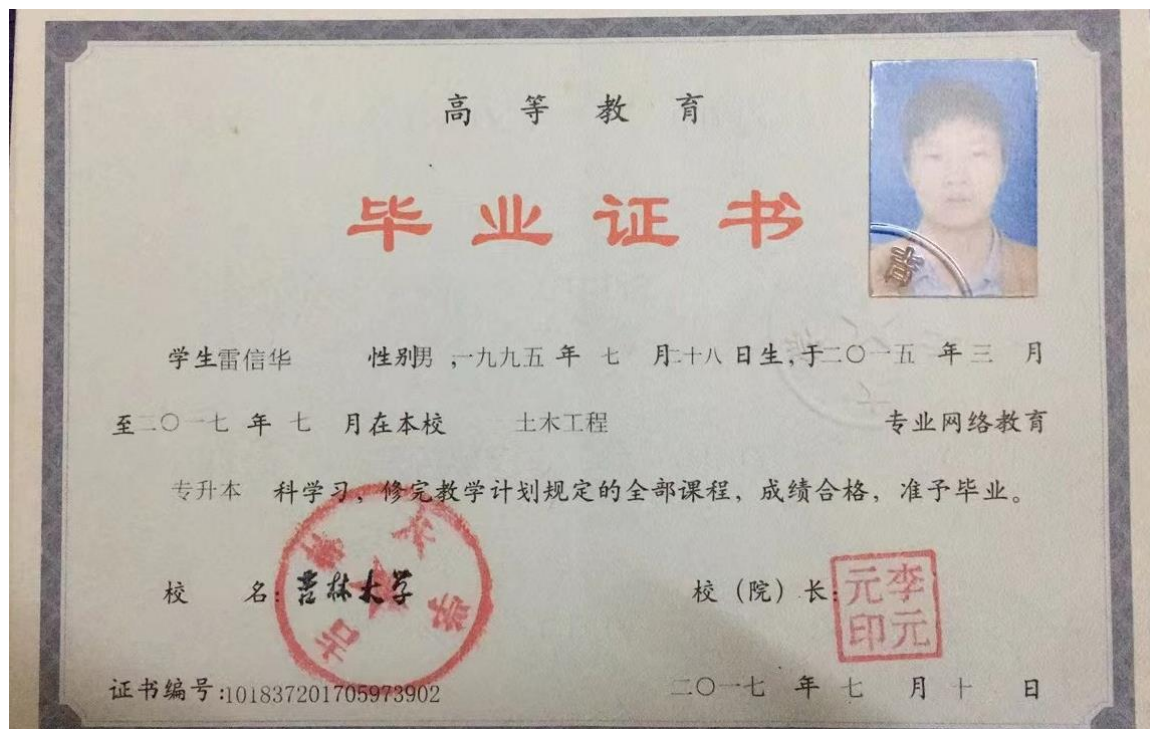 高等教育
毕业证书
学生雷信华 性别男,一九九五年七月二十八日生,于二〇一五年三月
至二〇一七年七月在本校 土木工程 专业网络教育
专升本 科学习，修完教学计划规定的全部课程，成绩合格，准予毕业。
校 名:吉林大学 校（院）长:
吉林大学
李元元印
证书编号:101837201705973902 二〇一七年七月十日